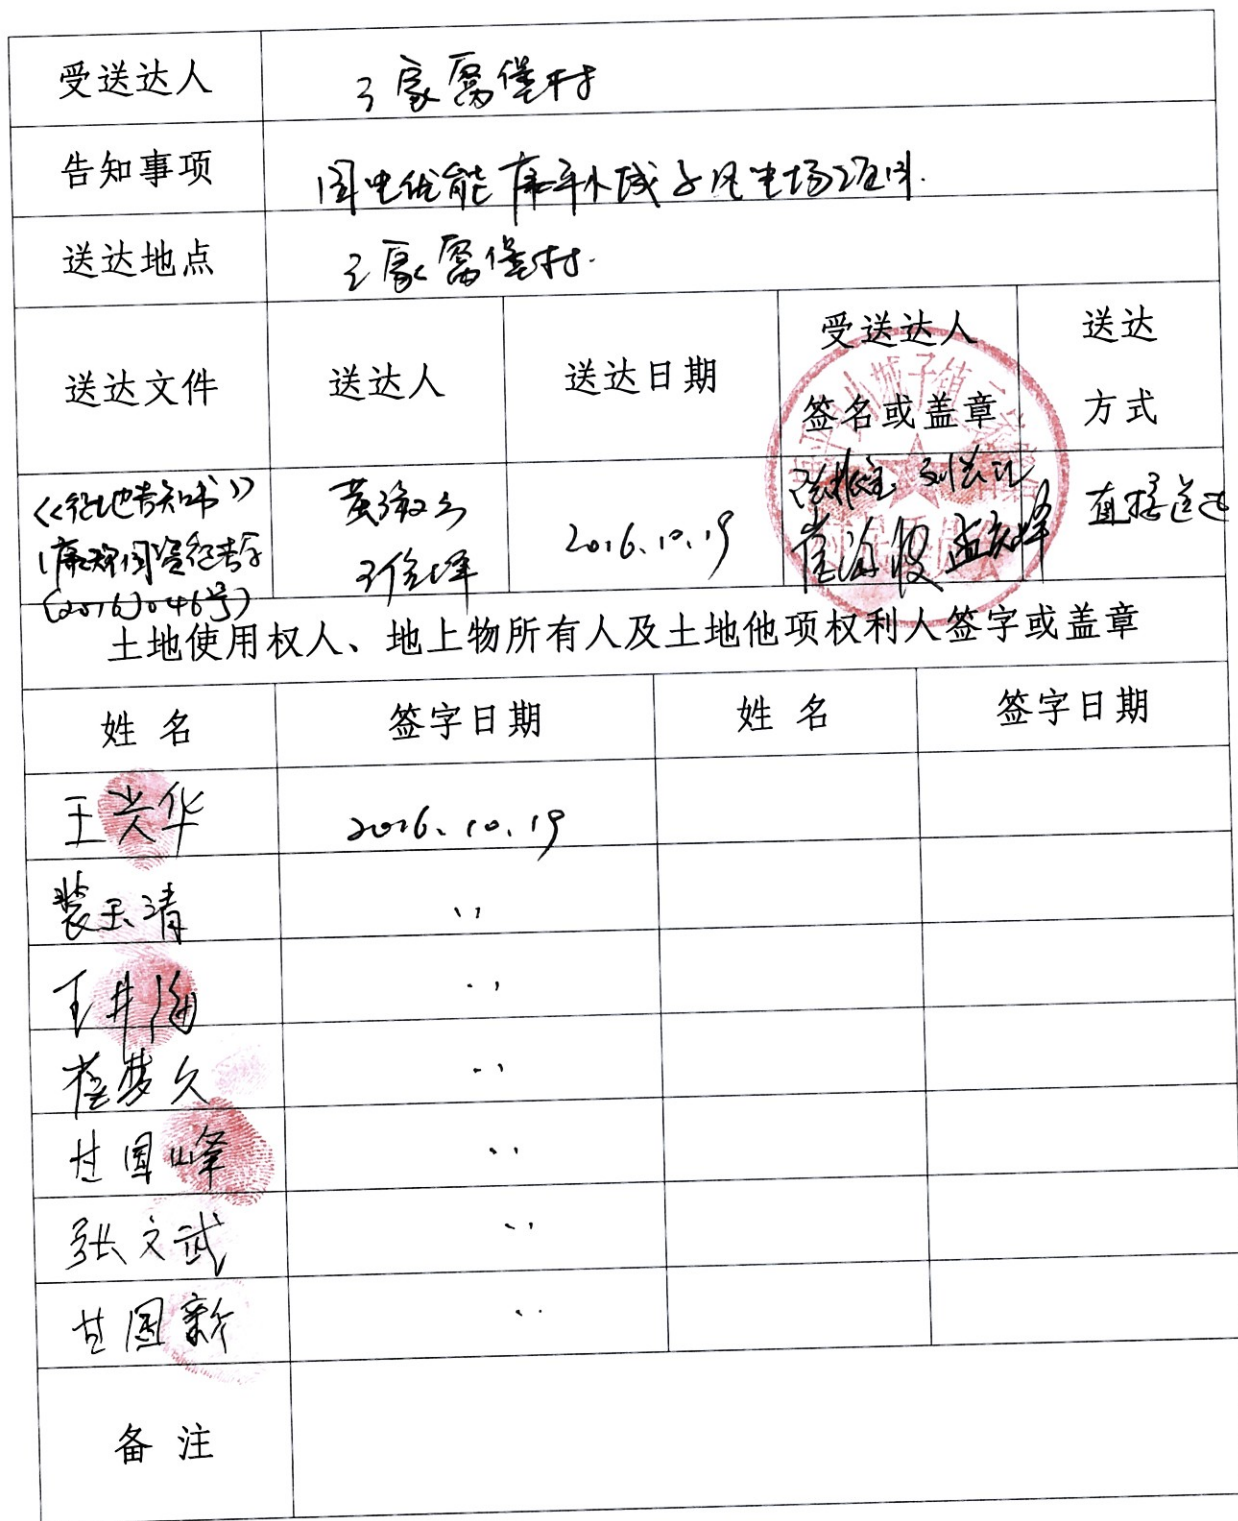 受送达人 三家窝堡村
告知事项 国电优能康平小城子风电场项目.
送达地点 三家窝堡村.
送达文件 送达人 送达日期 受送达人签名或盖章 送达方式
《征地告知书》
(康国资征告字
(2016)046号)
2016.10.19
直接送达
土地使用权人、地上物所有人及土地他项权利人签字或盖章
姓名 签字日期 姓名 签字日期
王兴华 2016.10.19
裴玉清 〃
王井海 〃
崔梦久 〃
甘国峰 〃
张文武 〃
甘国新 〃
备注